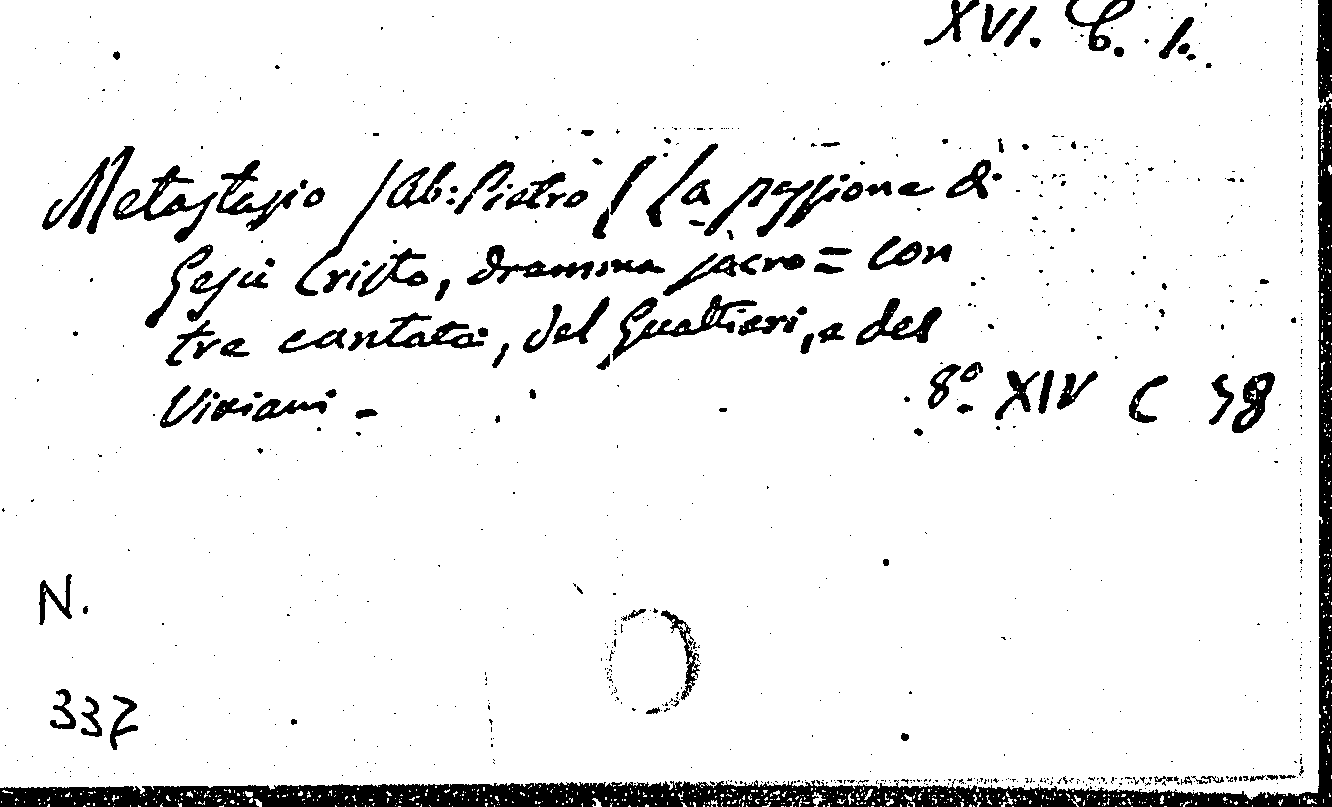 XVI. C. 1.
Metastasio /Ab: Pietro/ La passione di
Gesù Cristo, dramma sacro = con
tre cantate, del Gualtieri, e del
Viviani -
8º. XIV C 58
N.
337